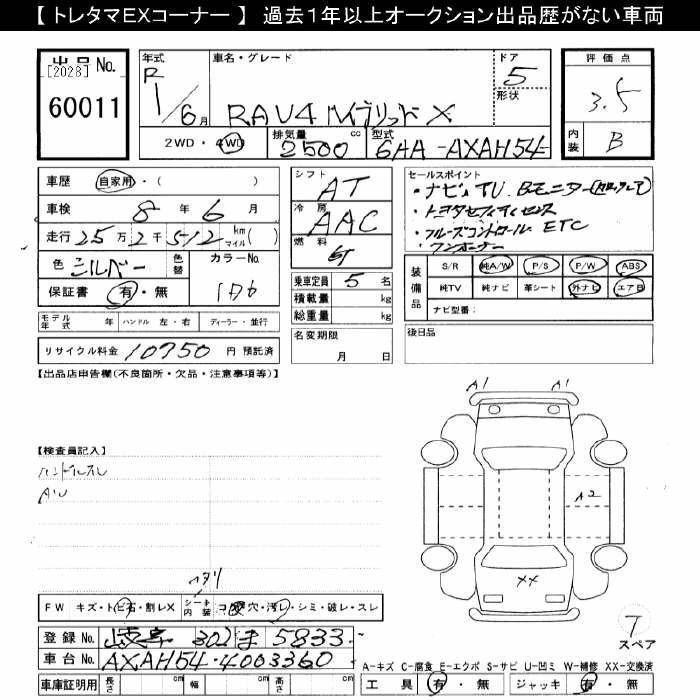 【 トレタマEXコーナー 】 過去1年以上オークション出品歴がない車両
出品No.
[2028]
60011
年式
R 1/6月
車名・グレード
RAV4 ハイブリッド X
ドア
5
形状
評価点
3.5
内装
B
2WD・4WD
排気量
2500 cc
型式
6AA-AXAH54-
車歴 自家用・( )
車検 8年 6月
走行 25万2千512 km マイル( )
色 シルバー 色替
カラーNo.
1D6
保証書 有・無
シフト
AT
冷房
AAC
燃料
乗車定員 5 名
積載量 kg
総重量 kg
セールスポイント
・ナビ、TV、Bモニター
・トヨタセーフティセンス
・クルーズコントロール ETC
・ワンオーナー
装備品
S/R 純A/W P/S P/W ABS
純TV 純ナビ 革シート 外ナビ エアB
ナビ型番:
モデル年式 年 ハンドル 左・右 ディーラー・並行
リサイクル料金 10750 円 預託済
名変期限
月 日
後日品
【出品店申告欄(不良箇所・欠品・注意事項等)】
【検査員記入】
ハンドルスレ
A1 A1
A2
XX
FW キズ・トビ石・割レX
シート内装 コゲ穴・汚レ・シミ・破レ・スレ
T
スペア
登録No. 岐阜 302 ま 5833
車台No. AXAH54-4003360
A-キズ C-腐食 E-エクボ S-サビ U-凹ミ W-補修 XX-交換済
車庫証明用 長さ cm 幅 cm 高さ cm
工具 有・無 ジャッキ 有・無